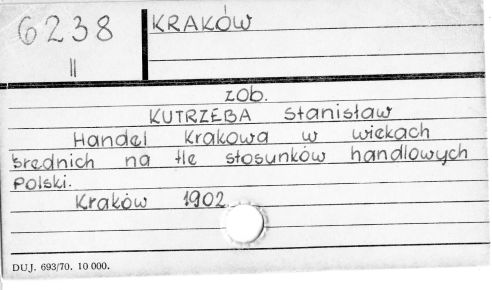 6238
II
KRAKÓW
zob.
KUTRZEBA Stanisław
Handel Krakowa w wiekach
średnich na tle stosunków handlowych
Polski.
Kraków 1902
DUJ. 693/70. 10 000.